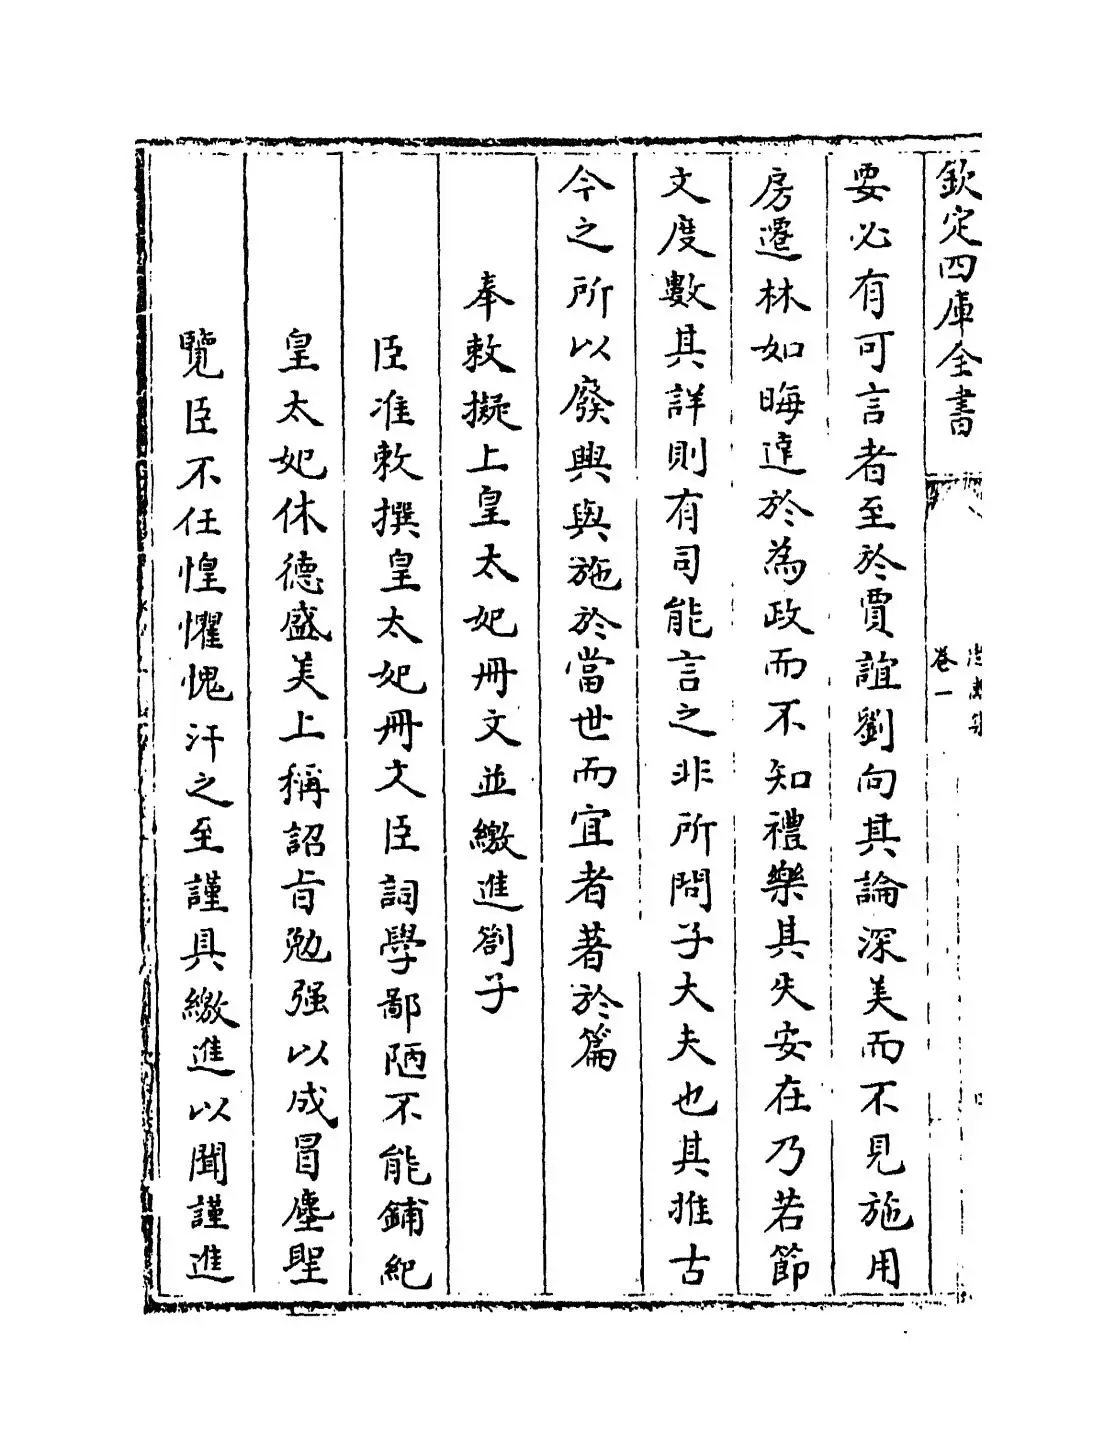 欽定四庫全書
卷一
要必有可言者至於賈誼劉向其論深美而不見施用
房遷林如晦達於為政而不知禮樂其失安在乃若節
文度數其詳則有司能言之非所問子大夫也其推古
今之所以廢興與施於當世而宜者著於篇
奉敕擬上皇太妃冊文並繳進劄子
臣准敕撰皇太妃冊文臣詞學鄙陋不能鋪紀
皇太妃休德盛美上稱詔旨勉强以成冒塵聖
覽臣不任惶懼愧汗之至謹具繳進以聞謹進